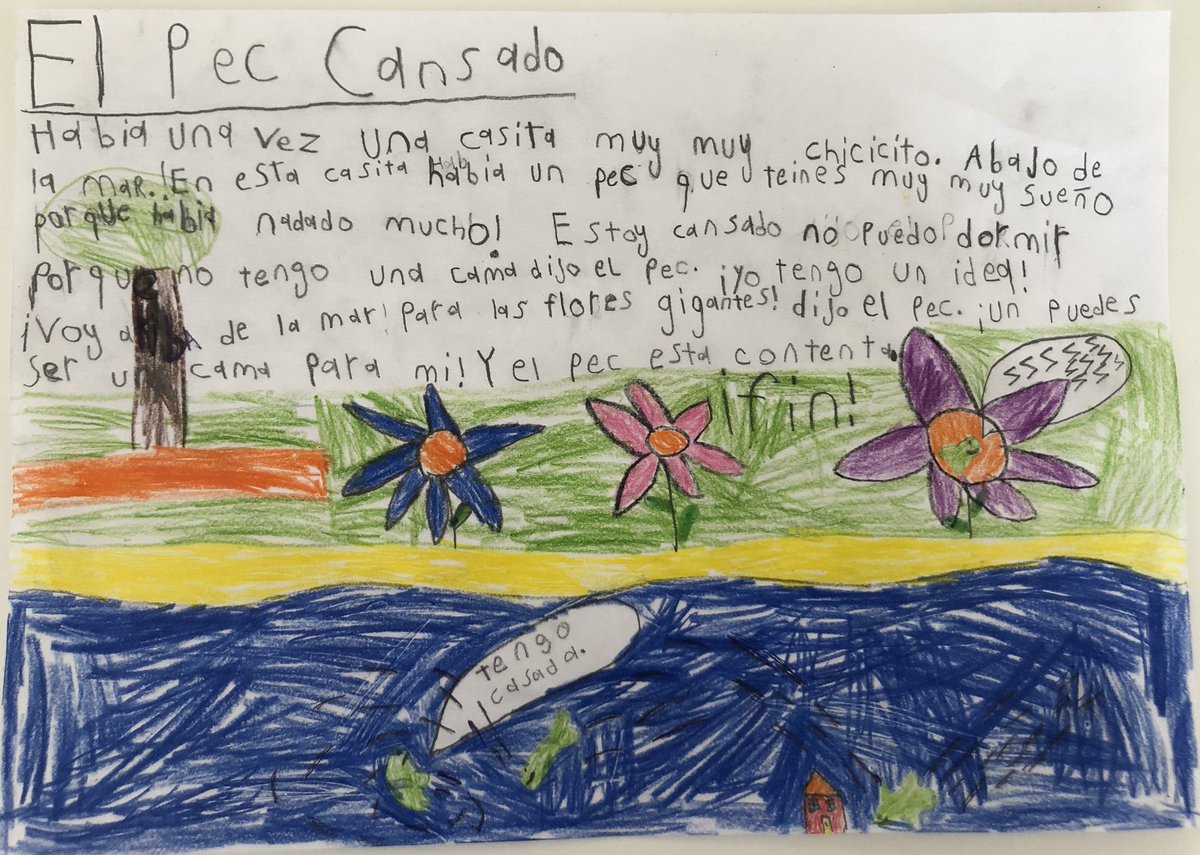 El Pec Cansado
Habia una vez una casita muy muy chicicito. Abajo de
la mar. En esta casita había un pec que teines muy muy sueño
porque había nadado mucho! Estoy cansado no puedo dormir
porque no tengo una cama dijo el pec. ¡yo tengo un idea!
¡Voy de la mar! para las flores gigantes! dijo el pec. ¡un puedes
ser cama para mi! Y el pec esta contento
¡fin!
SSSSSSSSS
tengo
casada.